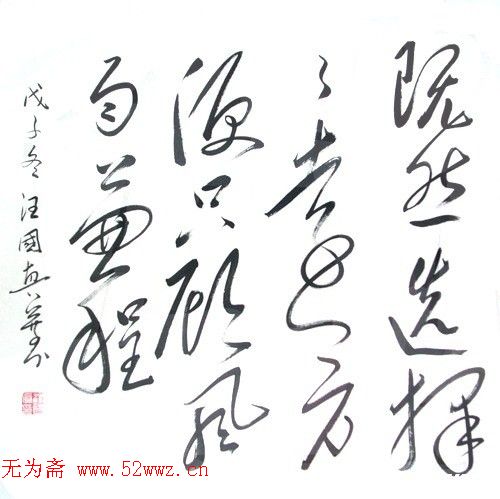 既然选择
了远方
便只顾风
雨兼程
戊子冬汪國真
无为斋 www.52wwz.cn